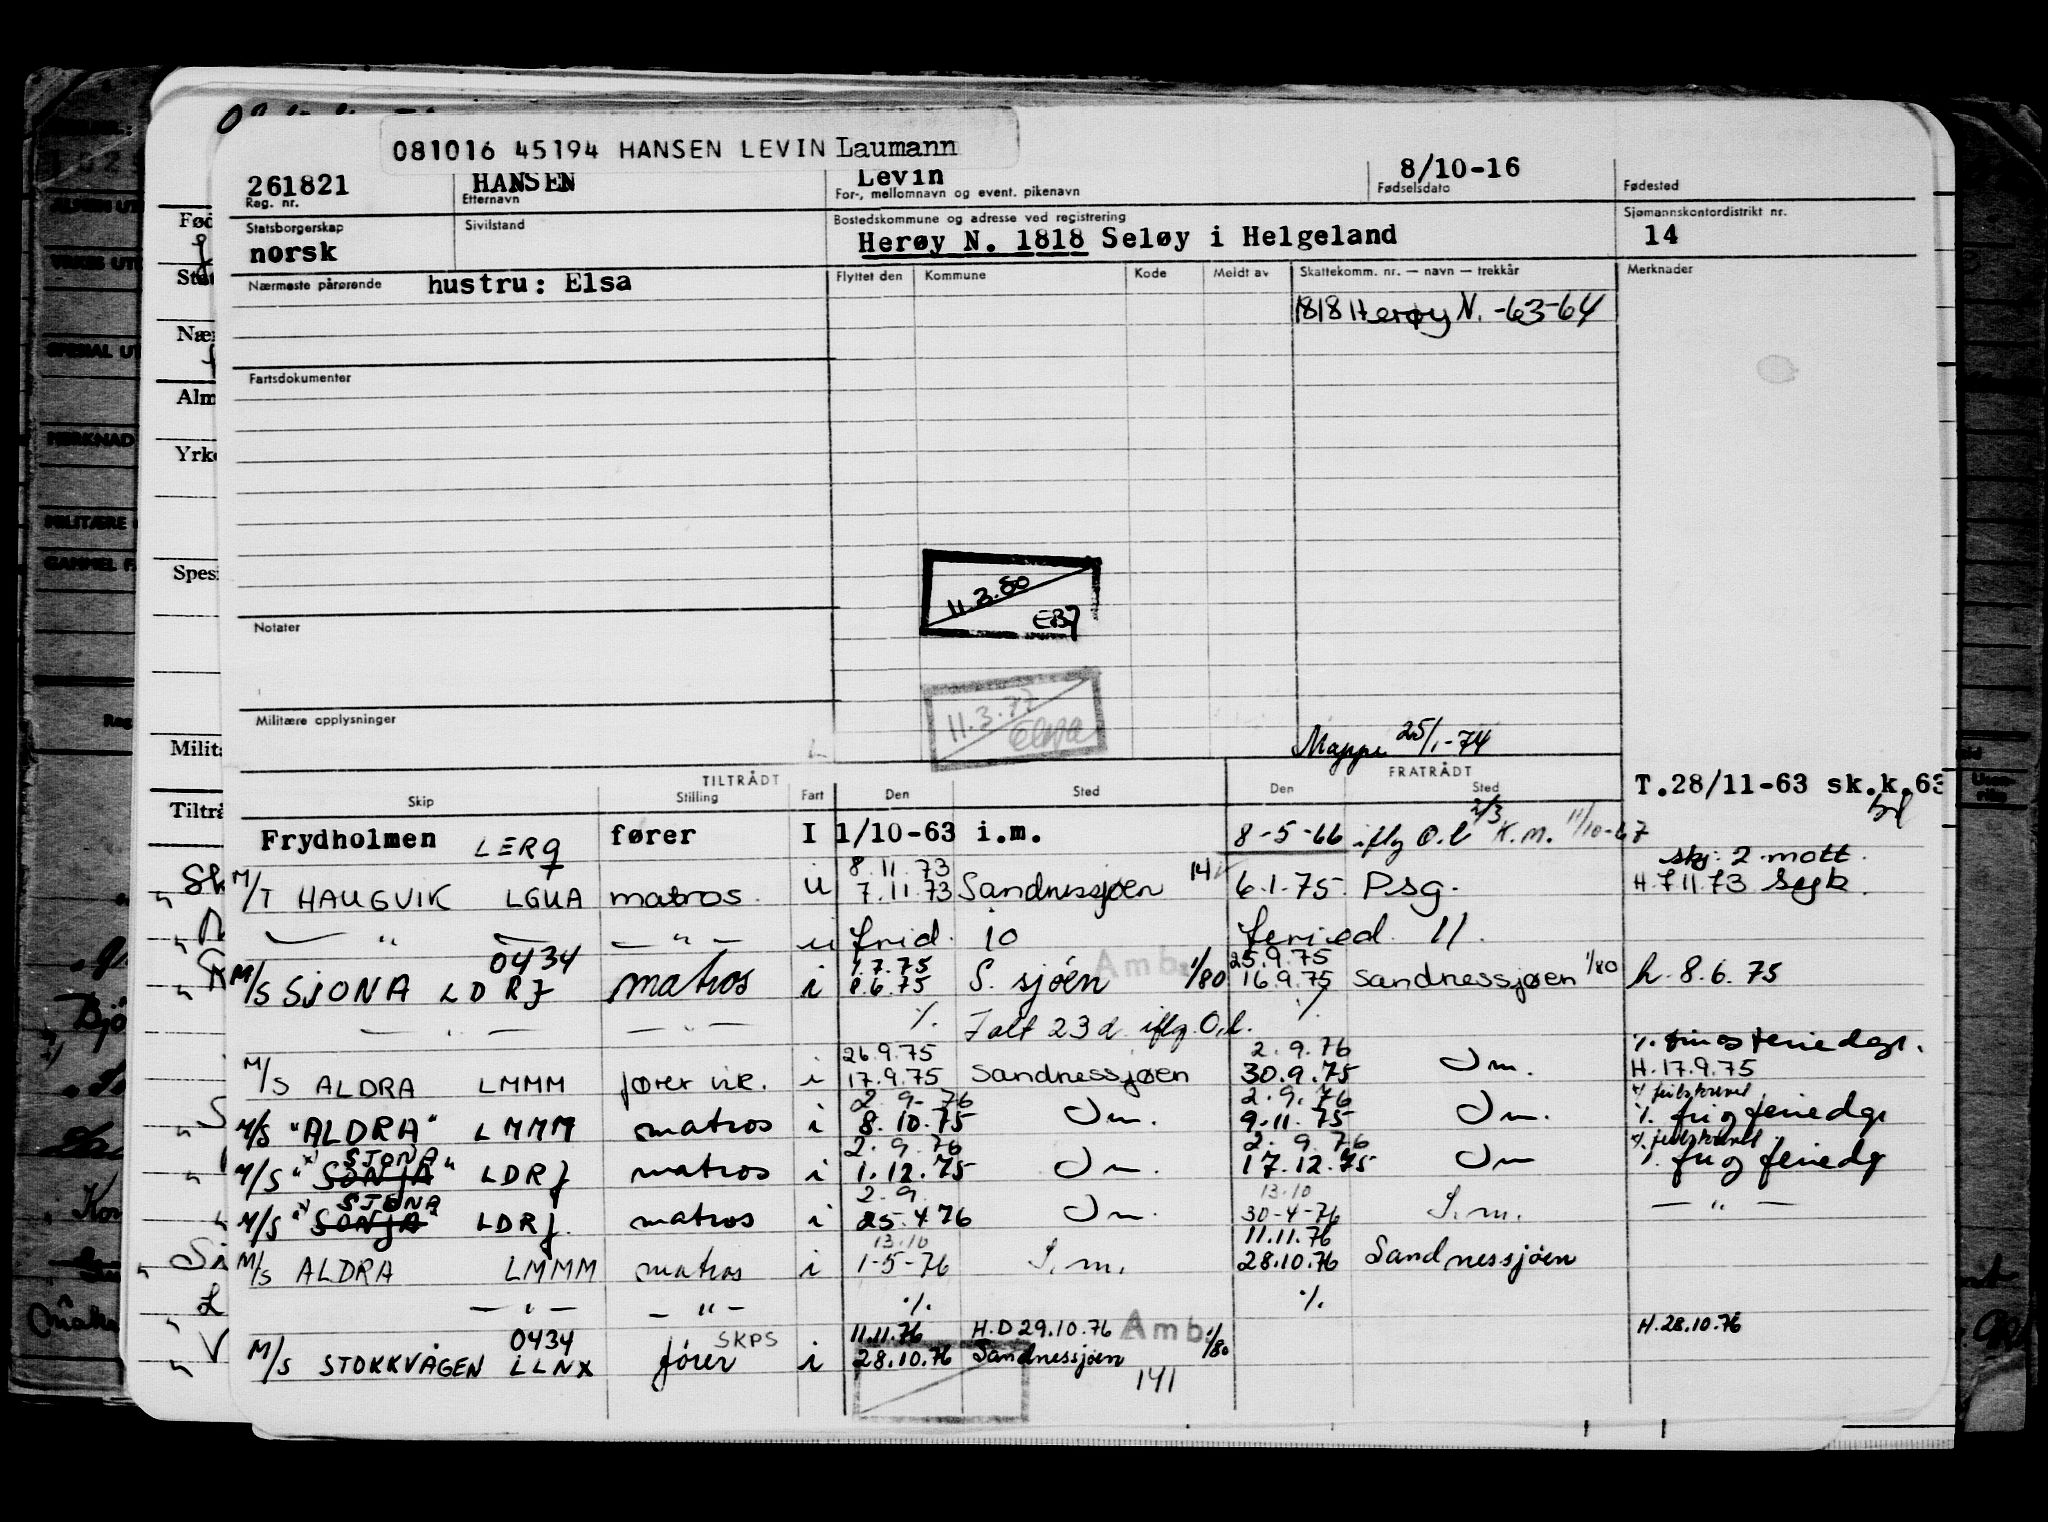 081016 45194 HANSEN LEVIN Laumann
261821 HANSEN Levin 8/10-16
Reg. nr. Etternavn For-, mellomnavn og event. pikenavn Fødselsdato Fødested
Statsborgerskap Sivilstand Bostedskommune og adresse ved registrering Sjømannskontordistrikt nr.
norsk Herøy N. 1818 Seløy i Helgeland 14
Nærmeste pårørende hustru: Elsa Flyttet den Kommune Kode Meldt av Skattekomm. nr. — navn — trekkår Merknader
1818 Herøy N. -63-64
Fartsdokumenter
11.3.80
Notater
11.3.77
Militære opplysninger
Mappe 25/1-74
TILTRÅDT FRATRÅDT
Skip Stilling Fart Den Sted Den Sted
T.28/11-63 sk.k.63
Frydholmen LERQ fører I 1/10-63 i.m. 8-5-66 iflg O.l 2/3 K.M. 11/10-67
8.11.73 skj. 2 mott.
M/T HAUGVIK LGUA matros. u 7.11.73 Sandnessjøen 141 6.1.75 Psg. H.7.11.73 Segb.
— " — — " — u frid. 10 feried. 11.
0434 1.7.75 Amb. 25.9.75
M/S SJONA LDRJ matros i 8.6.75 S. sjøen 1/80 16.9.75 Sandnessjøen 1/80 h. 8.6.75
— " — — " — %. Falt 23 d. iflg. O.l. %.
26.9.75 2.9.76 %. fri og feriedgr.
M/S ALDRA LMMM fører vik. i 17.9.75 Sandnessjøen 30.9.75 Im. H.17.9.75
2.9-76 2.9.76
M/S "ALDRA" LMMM matros i 8.10.75 Im. 9.11.75 Im. %. fri og feriedgr
SJONA 2.9.76 2.9.76
M/S "SONJA" LDRJ matros i 1.12.75 Im. 17.12.75 Im %. fri og feriedg
SJONA 2.9. 13.10
M/S "SONJA" LDRJ. matros i 25.4.76 Im. 30-4-76 I.m. — " —
13.10 11.11.76
M/S ALDRA LMMM matros i 1-5-76 I.m. 28.10.76 Sandnessjøen
— " — — " — %. %.
0434 SKPS 11.11.76 H.D 29.10.76 Amb. 1/80 H.28.10.76
M/S STOKKVÅGEN LLNX fører i 28.10.76 Sandnessjøen
141